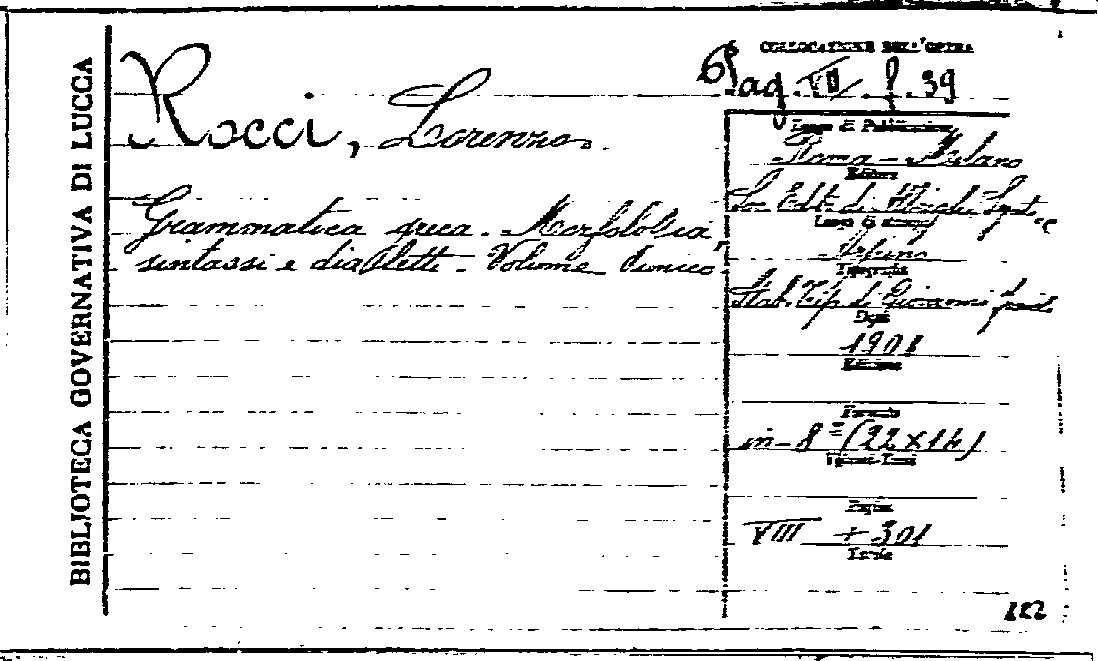 BIBLIOTECA GOVERNATIVA DI LUCCA
COLLOCAZIONE DELL'OPERA
Pag. VII f. 39
Rocci, Lorenzo
Grammatica greca. Morfologia,
sintassi e dialetti. Volume Unico
Luogo di Pubblicazione
Roma - Milano
Editore
Soc. Edit. di
Luogo di stampa
Arpino
Tipografia
Stab. Tip. di Giovanni
Data
1901
Edizione
Formato
in-8° (22 x 14)
Volumi-Tomi
Pagine
VIII + 301
Tavole